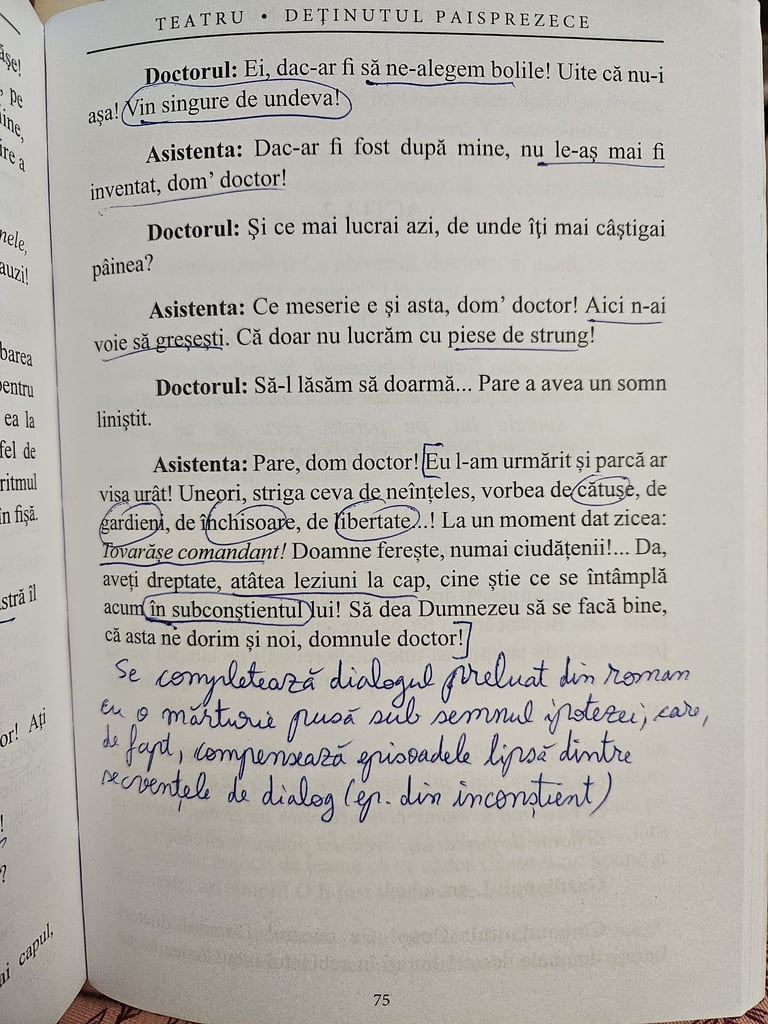 TEATRU • DEȚINUTUL PAISPREZECE
Doctorul: Ei, dac-ar fi să ne-alegem bolile! Uite că nu-i
așa! Vin singure de undeva!
Asistenta: Dac-ar fi fost după mine, nu le-aș mai fi
inventat, dom' doctor!
Doctorul: Și ce mai lucrai azi, de unde îți mai câștigai
pâinea?
Asistenta: Ce meserie e și asta, dom' doctor! Aici n-ai
voie să greșești. Că doar nu lucrăm cu piese de strung!
Doctorul: Să-l lăsăm să doarmă... Pare a avea un somn
liniștit.
Asistenta: Pare, dom doctor! Eu l-am urmărit și parcă ar
visa urât! Uneori, striga ceva de neînțeles, vorbea de cătușe, de
gardieni, de închisoare, de libertate...! La un moment dat zicea:
Tovarășe comandant! Doamne ferește, numai ciudățenii!... Da,
aveți dreptate, atâtea leziuni la cap, cine știe ce se întâmplă
acum în subconștientul lui! Să dea Dumnezeu să se facă bine,
că asta ne dorim și noi, domnule doctor!
Se completează dialogul preluat din roman
cu o mărturie pusă sub semnul ipotezei; care,
de fapt, compensează episoadele lipsă dintre
secvențele de dialog (ep. din inconștient)
75
ășe!
pe
line,
ire a
nele,
auzi!
barea
pentru
ea la
fel de
ritmul
în fișă.
astră îl
or! Ați
!
?
ai capul,